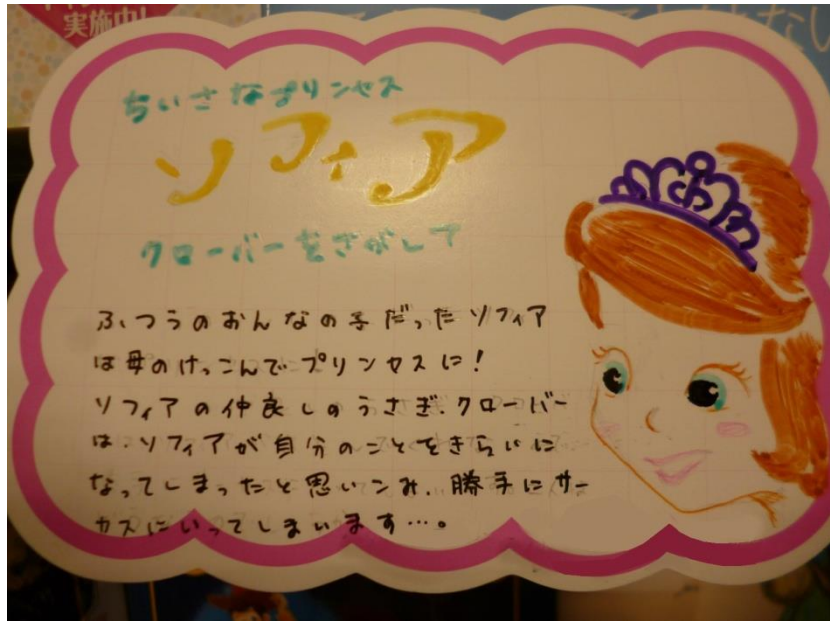 実施中!
ちいさなプリンセス
ソフィア
クローバーをさがして
ふつうのおんなの子だったソフィア
は母のけっこんでプリンセスに!
ソフィアの仲良しのうさぎ、クローバー
は、ソフィアが自分のことをきらいに
なってしまったと思いコみ、勝手にサー
カスにいってしまいます…。